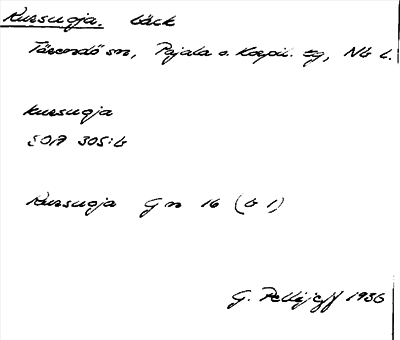 Kursugja. bäck
Tärendö sn, Pajala o. Korpil. tg, Nb l.
kursugja
SOA 305:b
Kursugja Gn 16 (b 1)
G. Pellijeff 1936